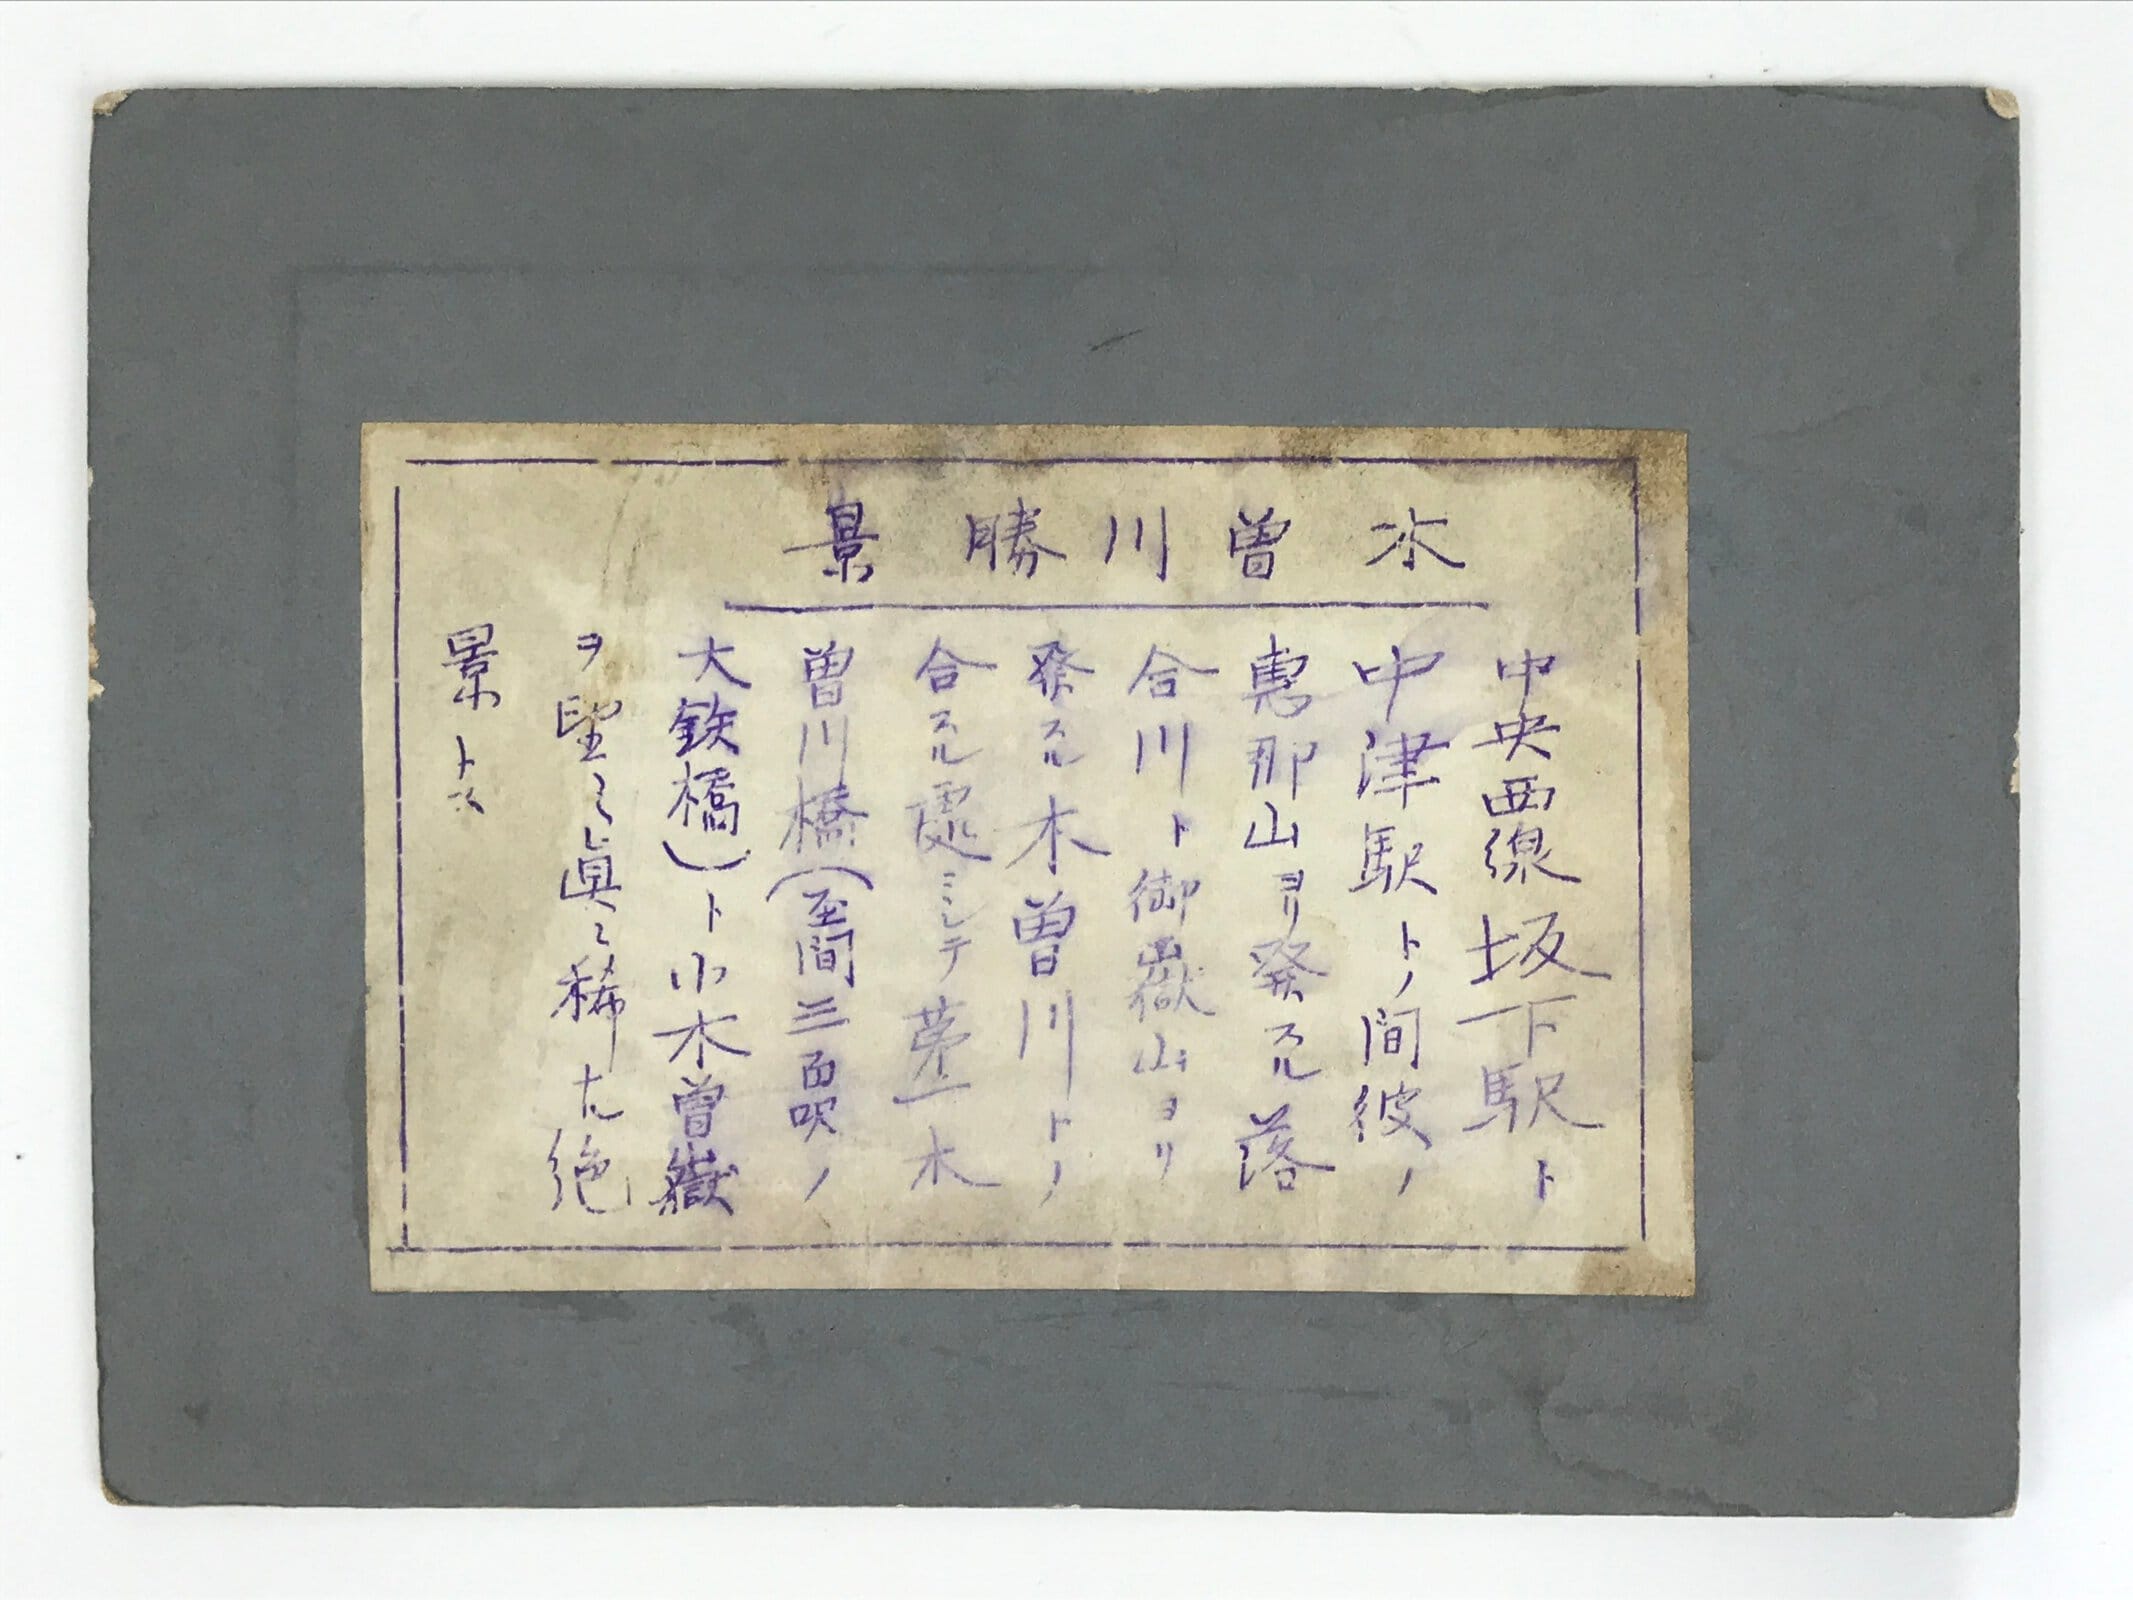 木曽川勝景
中央西線坂下駅ト
中津駅トノ間彼ノ
惠那山ヨリ発スル落
合川ト御嶽山ヨリ
発スル木曽川トノ
合スル處ミシテ木
曽川橋(至間三百呎ノ
大鉄橋)ト小木曽嶽
ヲ望ミ眞ニ稀ナル絶
景トス